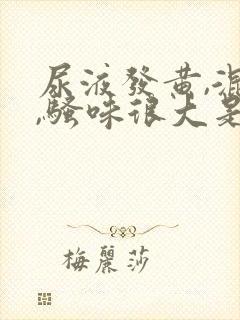 尿液發黄,混
,騷味很大是
梅麗莎